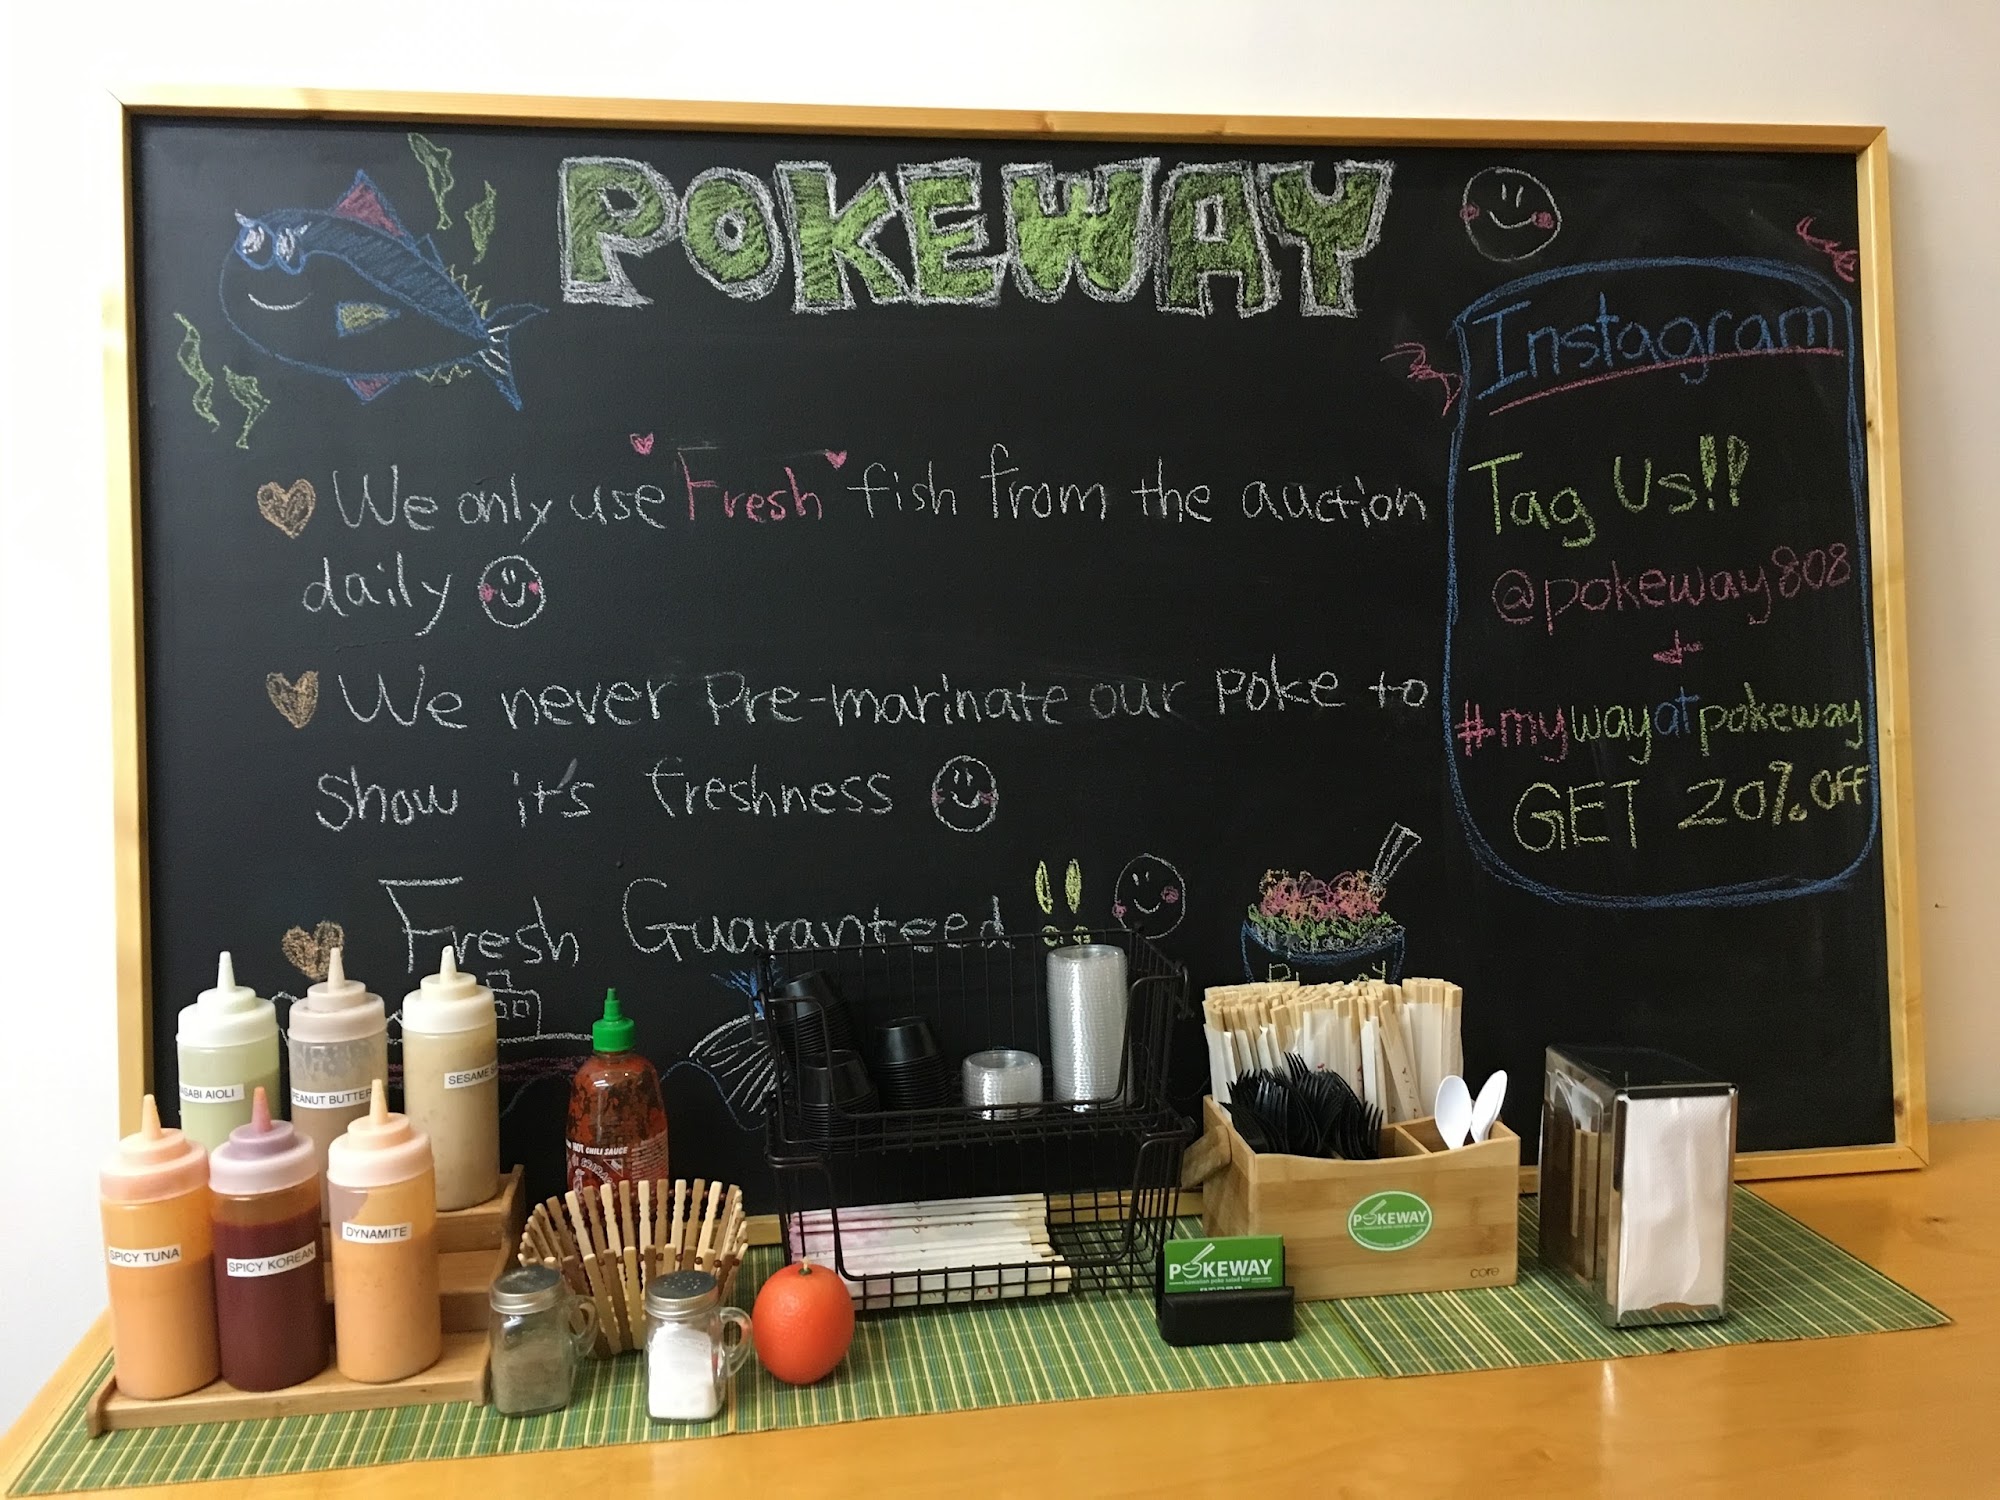 POKEWAY
We only use Fresh fish from the auction
daily
We never Pre-marinate our poke to
show it's freshness
Fresh Guaranteed !!
Instagram
Tag Us!!
@pokeway808
+
#mywayatpokeway
GET 20% OFF
ASABI AIOLI
PEANUT BUTTER
SESAME
SPICY TUNA
SPICY KOREAN
DYNAMITE
HOT CHILI SAUCE
POKEWAY
hawaiian poke salad bar
POKEWAY
core